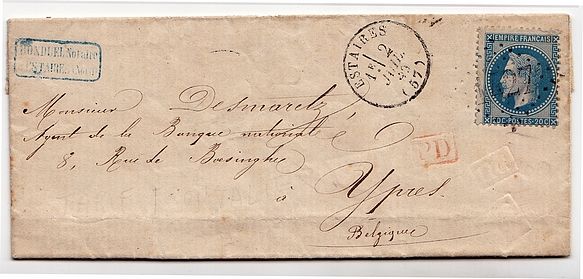 BONDUEL, Notaire
ESTAIRES (Nord)
ESTAIRES
1E
2
JUIL
(57)
EMPIRE FRANCAIS
20C POSTES 20C
Monsieur Desmaretz
Agent de la Banque nationale
8, Rue de Boesinghe
à
Ypres
Belgique
PD